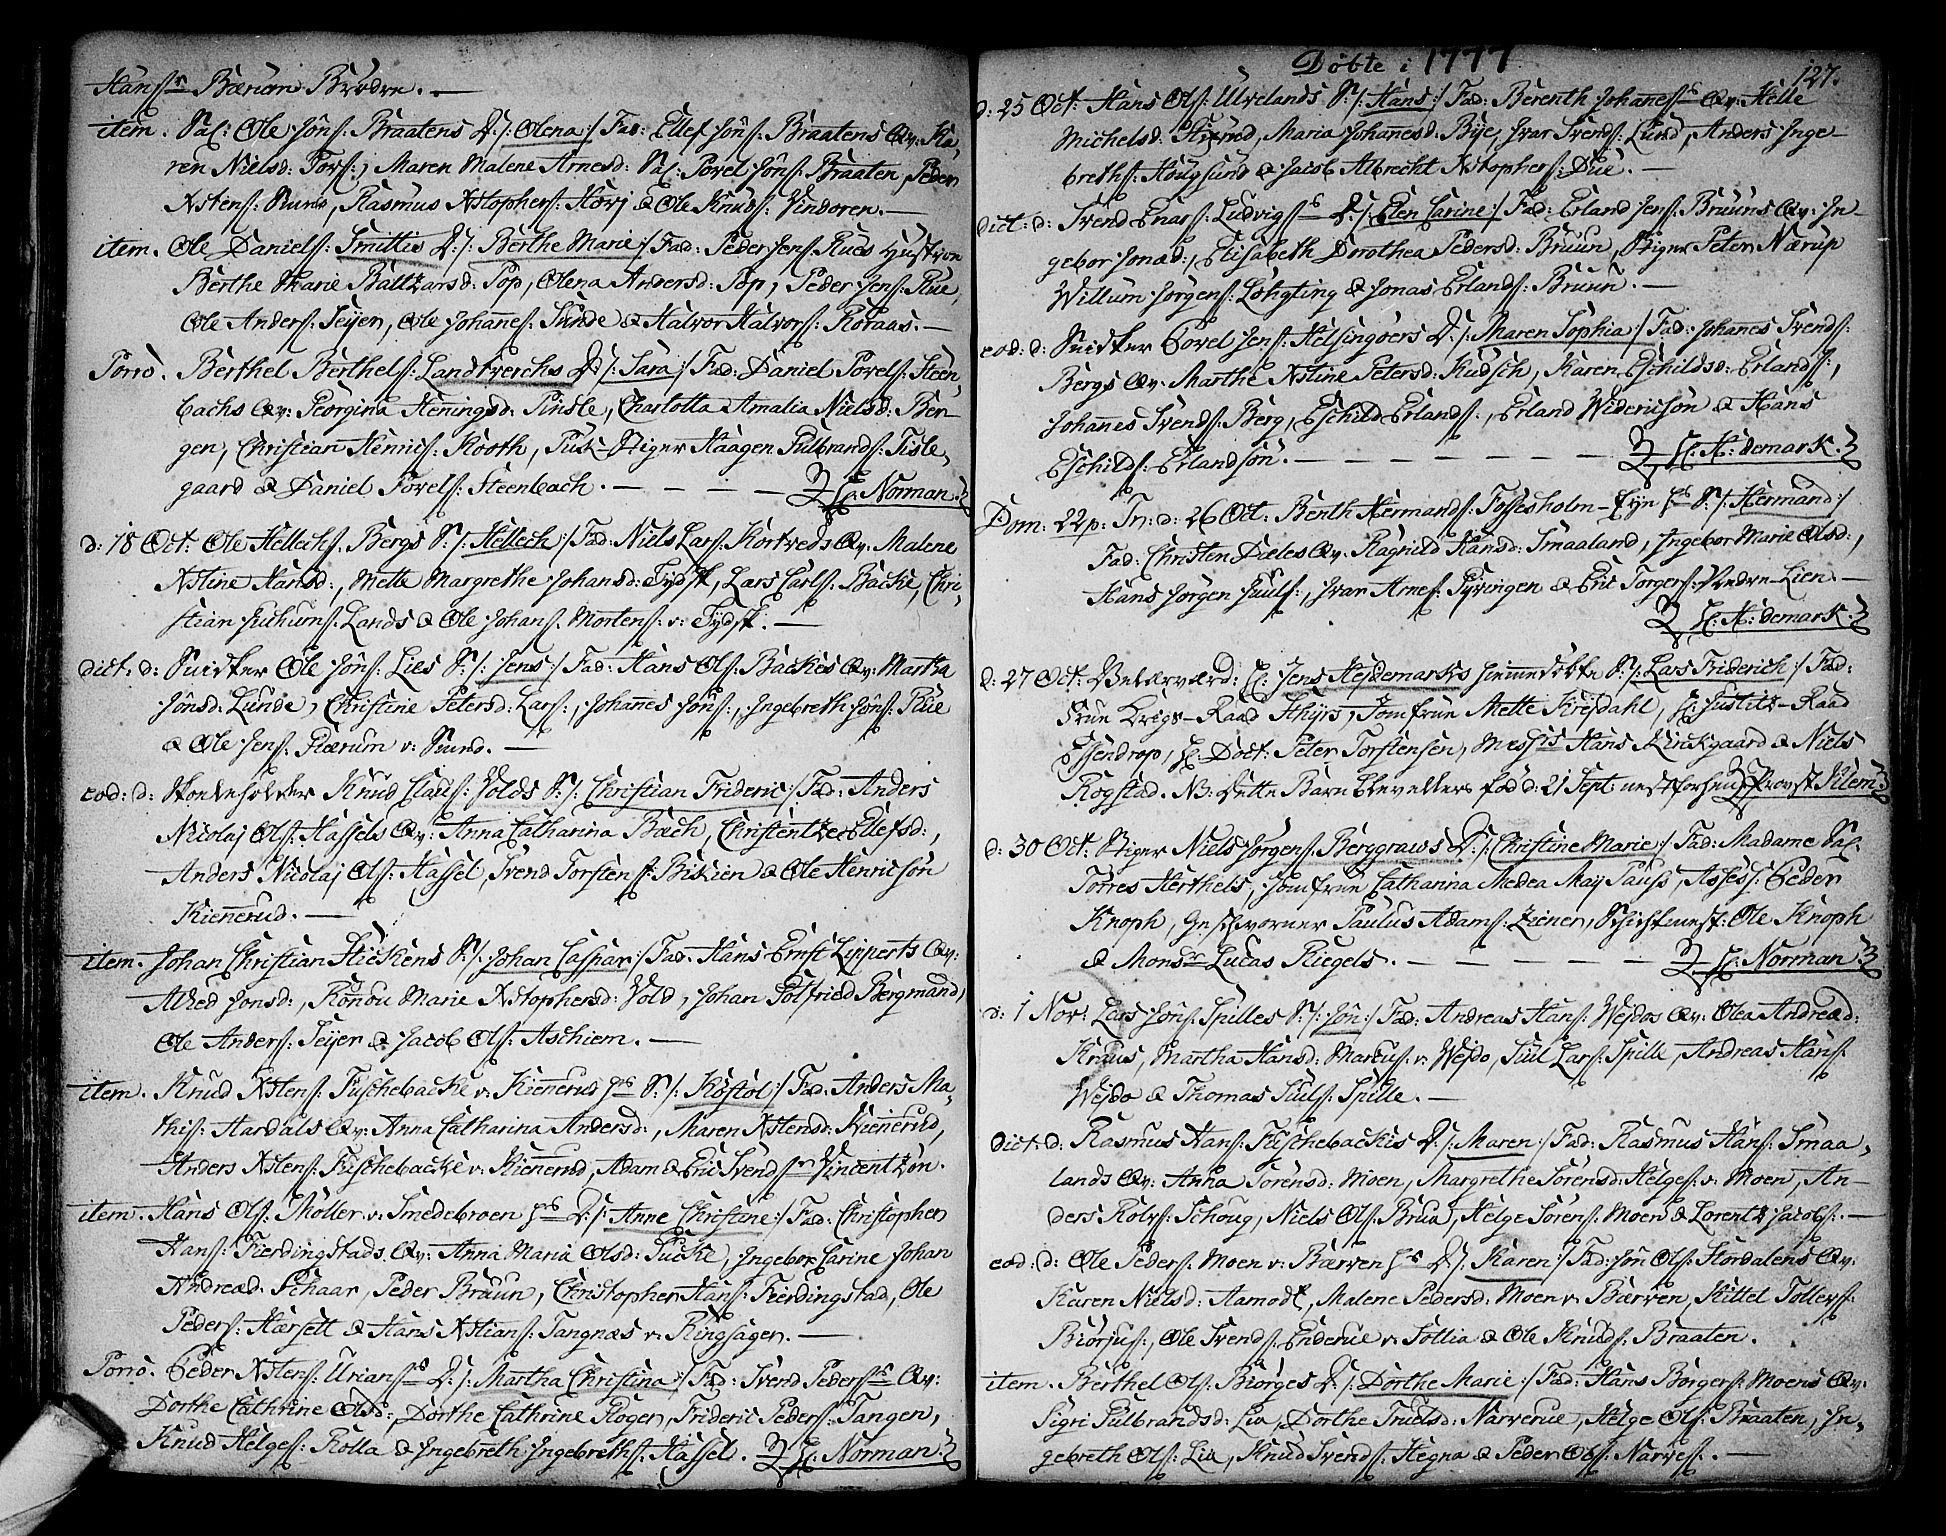 Hans: Bærum Brødre. —
item. Sal: Ole Jøns: Braatens D: /: Olena :/ Fad: Ellef Jøns: Braatens Qv: Ka-
ren Nielsd: Fors:, Maren Malene Arnesd: Sal: Povel Jøns: Braaten, Peder
Xstens: Ruud, Rasmus Xstophers: Korj & Ole Knuds: Vindoren. —
item. Ole Daniels: Smittis D: /: Berthe Marie :/ Fad: Peder Jens: Rues Hustroe
Berthe Marie Baltzarsd: Pop, Olena Andersd: Pop, Peder Jens: Rue,
Ole Anders: Seijer, Ole Johannes: Lunde & Halvor Halvors: Roraas. —
Porro. Berthel Berthels: Landtverchs D: /: Sara :/ Fad: Daniel Povels: Steen-
bachs Qv: Georgina Heningsd: Pinsle, Charlotta Amalia Nielsd: Ber-
gen, Christian Hennics: Kooth, Puk-Stiger Haagen Gulbrands: Tisle-
gaard & Daniel Povels: Steenbach. — — — — H: Norman.
d: 18 Oct: Ole Hellechs: Bergs S: /: Hellech :/ Fad: Niels Lars: Kortveds Qv: Malene
Xstine Hansd:, Mette Margrethe Johansd: Tydsk, Lars Carls: Backe, Chri-
stian Juhurns: Lands & Ole Johans: Mortens: v: Tydsk. —
dict: d: Snidker Ole Jøns: Lies S: /: Jens :/ Fad: Hans Ols: Backes Qv: Martha
Jønsd: Lunde, Christine Petersd: Lars:, Johannes Jøns:, Ingebreth Jøns: Rue
& Ole Jens: Bærum v: Sund. —
eod: d: Skoeleholder Knud Claus: Volds S: /: Christian Frideric :/ Fad: Anders
Nicolaj Ols: Hassels Qv: Anna Catharina Bach, Christentze Ellefsd:,
Anders Nicolaj Ols: Hassel, Svend Torstens: Biskien & Ole Henricsøn
Kiennerud. —
item. Johan Christian Stickens S: /: Johan Caspar :/ Fad: Hans Ernst Lipperts Qv:
Alhed Jonsd:, Rønou Marie Xstophersd: Vold, Johan Gotfried Bergmand,
Ole Anders: Seijer & Jacob Ols: Aschiem. —
item. Knud Xstens: Fischebacke v: Kiennerud hs S: /: Kostol :/ Fad: Anders Ma-
this: Hardals Qv: Anna Catharina Andersd:, Maren Xstensd: Kiennerud,
Anders Xstens: Fischebacke v: Kiennerud, Adam & Eric Svends: Vincentzøn.
item. Hans Ols: Møller v: Smedebroen hs D: /: Anne Christine :/ Fad: Christopher
Hans: Fierdingstads Qv: Anna Maria Olsd: Lucke, Ingebor Carine Johan
Andread: Schaar, Peder Bruun, Christopher Hans: Fierdingstad, Ole
Peders: Hærsett & Hans Xstians: Tangnæs v: Ringsager. —
Porro. Peder Xstens: Urians: D: /: Martha Christina :/ Fad: Svend Peders: Qv:
Dorthe Cathrine Olsd:, Dorthe Cathrine Røger, Frideric Peders: Tangen,
Knud Helges: Rolla & Ingebreth Ingebreths: Hassel. H: Norman.
Døbte i 1777
127.
d: 25 Oct: Hans Ols: Ulvelands S: /: Hans :/ Fad: Berenth Johannes: Qv: Helle
Michelsd: Strand, Maria Johannesd: Bye, Ivar Svends: Lund, Anders Inge-
breths: Hougsund & Jacob Albrecht Xstophers: Due. —
dict: d: Svend Enars: Ludvigs: D: /: Elen Carine :/ Fad: Erland Jens: Bruuns Qv: In-
gebor Jonæd:, Elisabeth Dorothea Pedersd: Bruun, Stiger Peter Nærup
Willum Jørgens: Løhgting & Jonas Erlands: Bruun. —
eod: d: Snidker Povel Jens: Helsingøers D: /: Maren Sophia :/ Fad: Johannes Svends:
Bergs Qv: Marthe Xstine Petersd: Kudsch, Karen Eschildsd: Erlands:,
Johannes Svends: Berg, Eschild Erlands:, Erland Widericsøn & Hans
Eschilds: Erlandsøn. — — — — — H: H: demark.
Dom: 22 p: Tr: d: 26 Oct: Benth Hermands: Fossesholm-Eyn hs S: /: Hermand :/
Fad: Christen Dæles Qv: Ragnild Hansd: Smaaland, Ingebor Marie Olsd:,
Hans Jørgen Juuls:, Ivar Arnes: Gyringen & Eric Torgers: Nedre-Lien. —
H: H: demark.
d: 27 Oct: Velærværd: H: Jens Hejdemarks hiemmedøbte S: /: Lars Friderich :/ Fad:
Frue Krigs-Raad Thyrs, Jomfrue Mette Krejdahl, H: Justitz-Raad
Essendrop, H: Doct: Peter Torstensen, Messrs Hans Kinckgaard & Niels
Rogstad. NB: Dette Barn blev ellers fød d: 21 Sept: nestforhen. Provst Klem.
d: 30 Oct: Stiger Niels Jørgens: Berggraws D: /: Christine Marie :/ Fad: Madame Sal:
Totres Herthels, Jomfrue Catharina Medea Maij Tauss, Assess: Peder
Knoph, Geschworner Paulus Adams: Ziener, Schichtmest: Ole Knoph
& Monsr Lucas Riegels. — — — — — H: Norman.
d: 1 Nov: Lars Jøns: Spilles S: /: Jøn :/ Fad: Andreas Hans: Wejdos Qv: Olea Andread:
Kraus, Martha Hansd: Marcus: v: Wejdo, Juul Lars: Spille, Andreas Hans:
Wejdo & Thomas Juuls: Spille. —
dict: d: Rasmus Hans: Fischebackis D: /: Maren :/ Fad: Rasmus Hans: Smaa-
lands Qv: Anna Sørensd: Moen, Margrethe Sørensd: Helges: v: Moen, An-
ders Rolvs: Schoug, Niels Ols: Brua, Helge Sørens: Moen & Lorentz Jacobs: —
eod: d: Ole Peders: Moen v: Bærven hs D: /: Karen :/ Fad: Jøn Ols: Stordalens Qv:
Karen Nielsd: Aamodt, Malene Pedersd: Moen v: Bærven, Kittel Tollevs:
Biørjus:, Ole Svends: Enderue v: Sollia & Ole Knuds: Braaten.
item. Berthel Ols: Biørges D: /: Dorthe Marie :/ Fad: Hans Børgers: Moens Qv:
Sigri Gulbrandsd: Lia, Dorthe Truelsd: Narverue, Helge Ols: Braaten, In-
gebreth Ols: Lia, Knud Svends: Hegna & Peder Ols: Narves: —